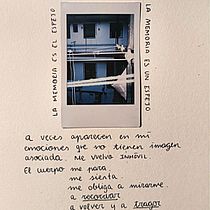 LA MEMORIA ES EL ESPEJO
LA MEMORIA ES UN ESPEJO
a veces aparecen en mi
emociones que no tienen imagen
asociada. Me vuelvo inmóvil
El cuerpo me para.
me sienta.
me obliga a mirarme
a recordar
a volver y a tragar